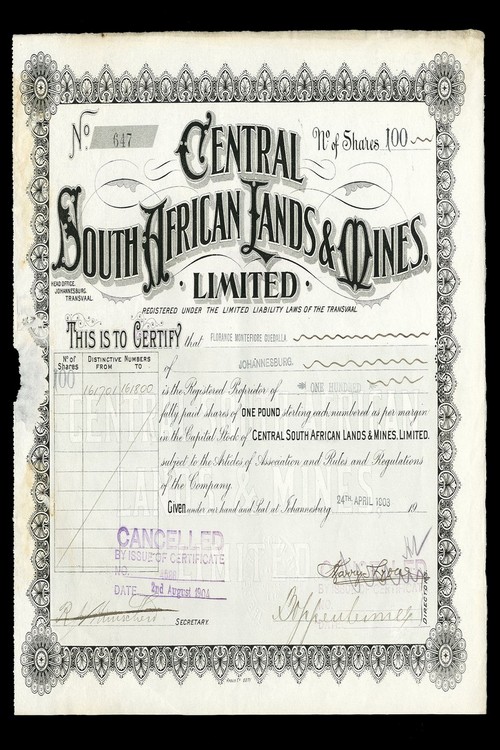 No. 647
No. of Shares 100
CENTRAL
SOUTH AFRICAN LANDS & MINES,
· LIMITED ·
HEAD OFFICE,
JOHANNESBURG,
TRANSVAAL.
REGISTERED UNDER THE LIMITED LIABILITY LAWS OF THE TRANSVAAL
THIS IS TO CERTIFY that FLORANCE MONTEFIORE GUEDALLA.
of JOHANNESBURG.
No. of Shares
DISTINCTIVE NUMBERS
FROM TO
100
161701 161800
is the Registered Proprietor of ONE HUNDRED
fully paid shares of ONE POUND sterling each, numbered as per margin
in the Capital Stock of CENTRAL SOUTH AFRICAN LANDS & MINES, LIMITED,
subject to the Articles of Association and Rules and Regulations
of the Company.
Given under our hand and Seal at Johannesburg 24TH. APRIL 1903 19
CANCELLED
BY ISSUE OF CERTIFICATE
NO.
DATE 2nd August 1904
SECRETARY.
DIRECTORS